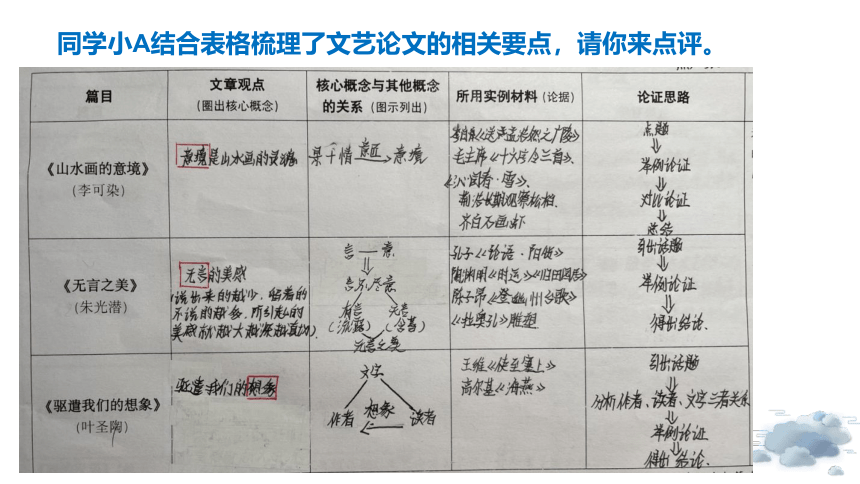 同学小A结合表格梳理了文艺论文的相关要点，请你来点评。
篇目
文章观点
（圈出核心概念）
核心概念与其他概念
的关系（图示列出）
所用实例材料（论据）
论证思路
《山水画的意境》
（李可染）
意境是山水画的灵魂
景＋情
意匠
意境
李白《送孟浩然之广陵》
毛主席《十六字令三首》、
《沁园春·雪》、
齐白石画虾
点题
举例论证
对比论证
总结
《无言之美》
（朱光潜）
无言的美感
（说出来的越少，留着的
不说的越多，所引起的
美感就越大越深越真切）
言——意
言不尽意
有言
无言
（流露）
（含蓄）
无言之美
孔子《论语·阳货》
陶渊明《时运》《归园田居》
陈子昂《登幽州台歌》
《拉奥孔》雕塑
引出话题
举例论证
得出结论.
《驱遣我们的想象》
（叶圣陶）
驱遣我们的想象
文字
作者
想象
读者
王维《使至塞上》
高尔基《海燕》
引出话题
分析作者、读者、文字三者关系
举例论证
得出结论.